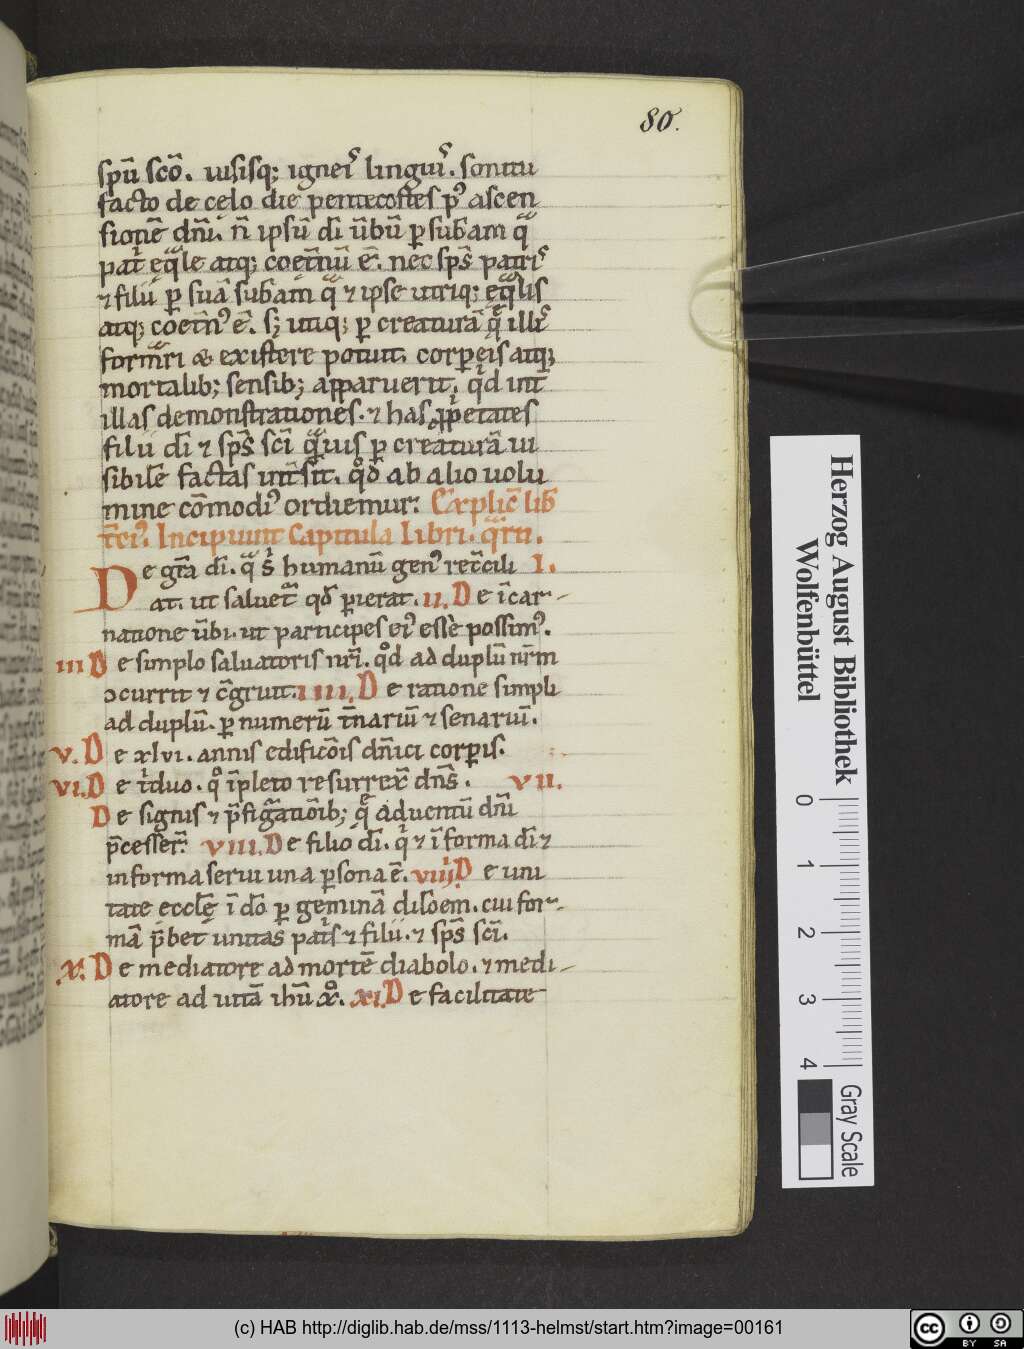 80.
spū scō. uisisq; igneis linguis. sonitu
facto de celo die pentecostes p' ascen
sionē dn̄i. n̄ ipsū di ūbū p subam q
pat eqle atq; coetnū ē. nec sps patris
⁊ filii p suā subam q ⁊ ipse utriq; eqlis
atq; coetn' ē. s; utiq; p creaturā q illis
formari & existere potuit. corpeis atq;
mortalib; sensib; apparuerit. qd int
illas demonstrationes. ⁊ has pprietates
filii di ⁊ sps sci quis p creaturā ui
sibilē factas int sit. qd ab alio uolu
mine cōmodi' ordiemur: Explic lib
tci'. Incipiunt Capitula Libri. qrti.
De gra di. q s humanū gen' recili I.
at. ut saluet qd pierat. ii. De icar-
natione ūbi. ut participes ei' esse possim'.
iii De simplo saluatoris nri. qd ad duplū nrm
ocurrit ⁊ cgruit. iiii. De ratione simpli
ad duplū. p numerū tnariū ⁊ senariū.
v. De xlvi. annis edificōis dn̄ici corpis.
vi. De tduo. q īpleto resurrex dn̄s. vii.
De signis ⁊ pfigatiōib; q aduentū dn̄i
pcesser: viii. De filio di. q ⁊ ī forma di ⁊
in forma serui una psona ē. viiij. De uni
tate eccle ī do p geminā disloem. cui for-
mā pbet unitas pats ⁊ filii. ⁊ sps sci.
x. De mediatore ad mortē diabolo. ⁊ medi-
atore ad uitā ihū x. xi. De facilitate
Herzog August Bibliothek
Wolfenbüttel
0 1 2 3 4
Gray Scale
(c) HAB http://diglib.hab.de/mss/1113-helmst/start.htm?image=00161
cc BY SA